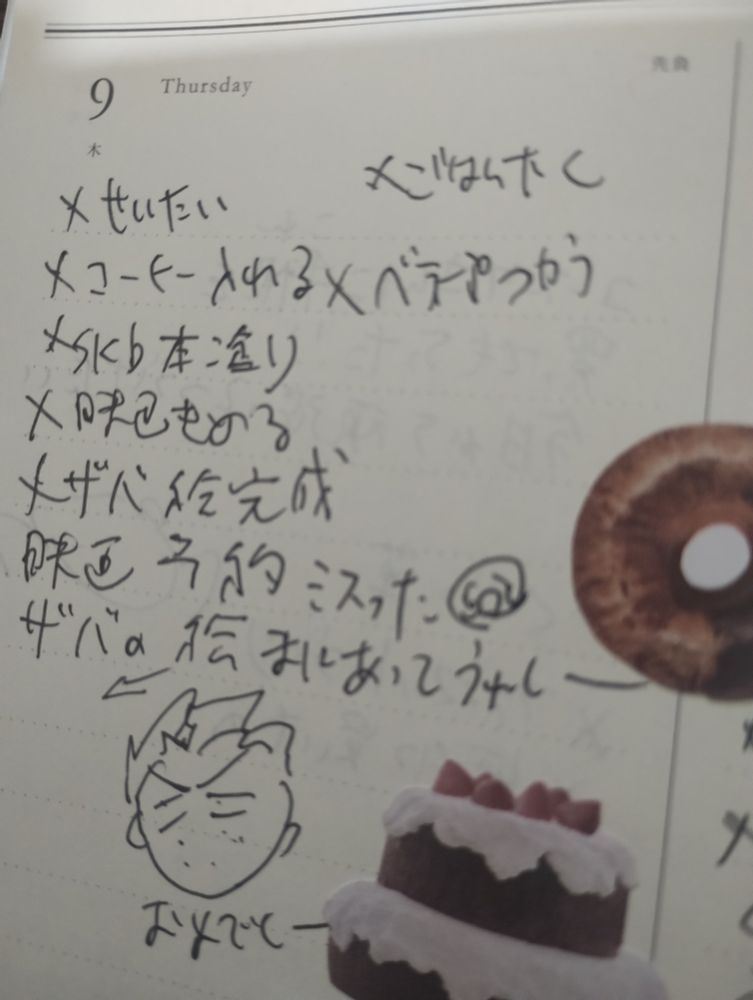 9 Thursday 先負
木
×ごはんたく
×せいたい
×コーヒー入れる ×ベラやつかう
×SKb本塗り
×映画きめる
×ザバ絵完成
映画予約ミスった
ザバの絵まにあってうれしー
おめでとー